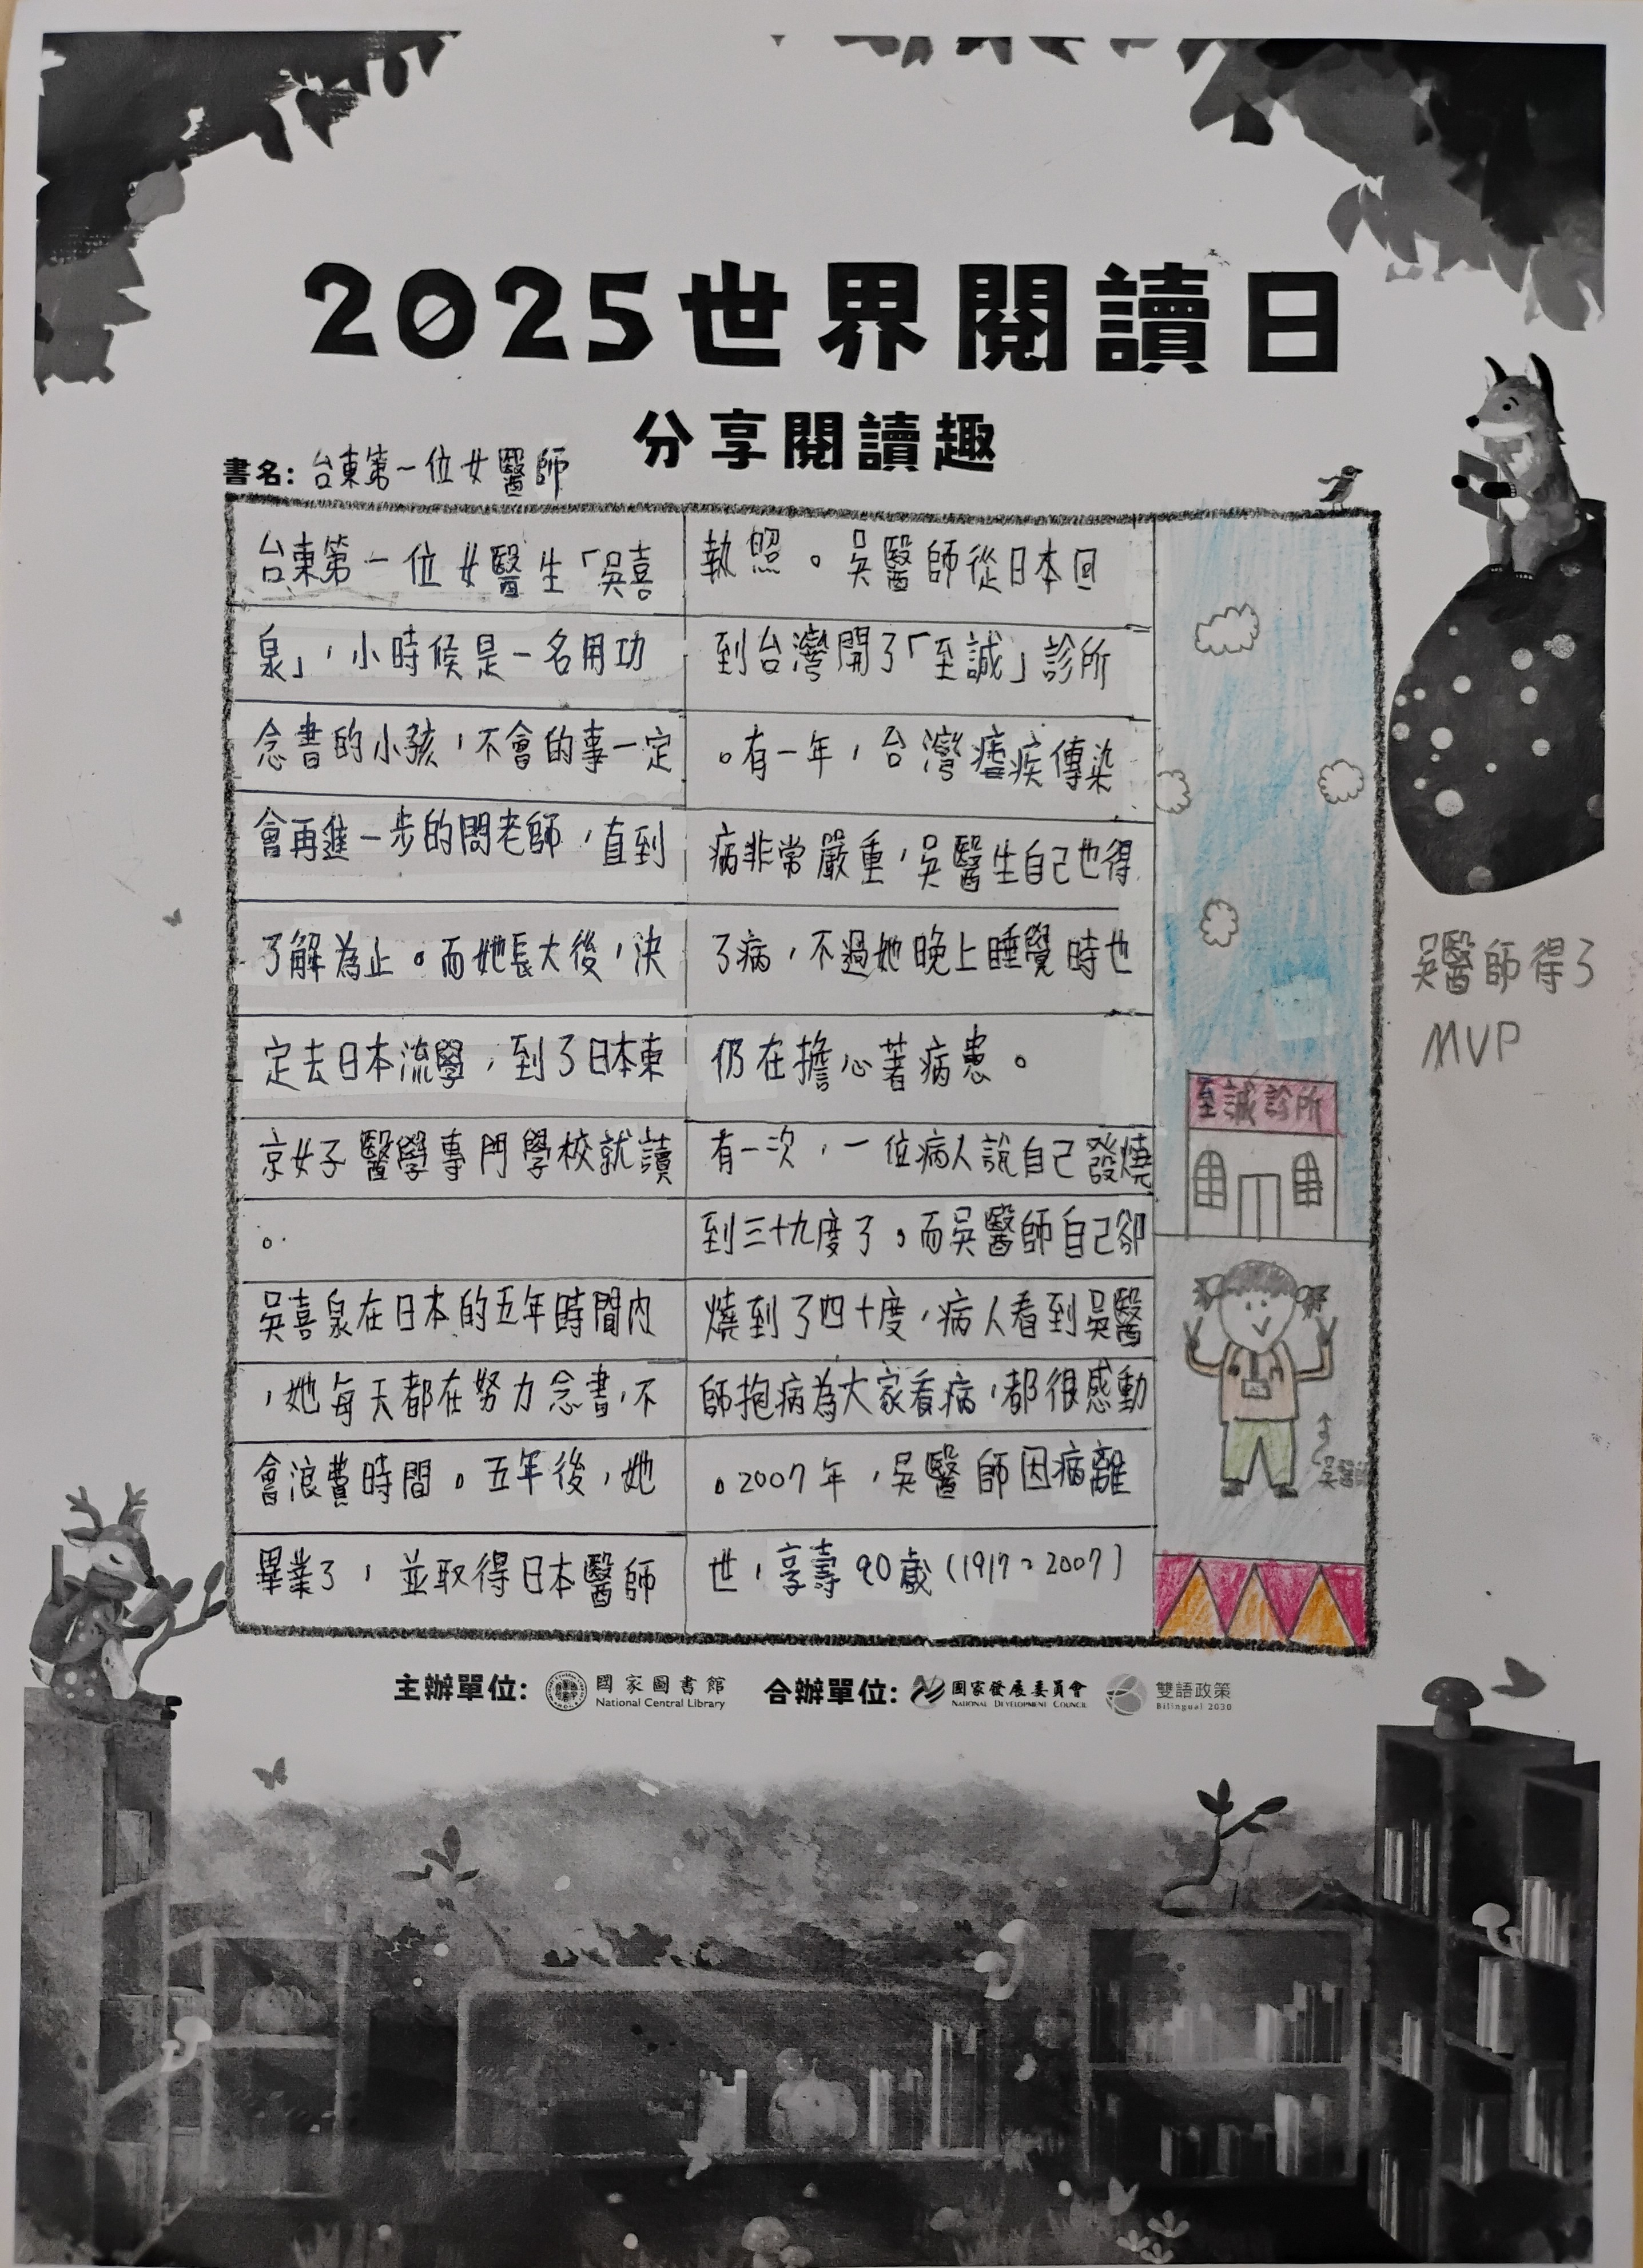 2025世界閱讀日
分享閱讀趣
書名：台東第一位女醫師
台東第一位女醫生「吳喜
泉」，小時候是一名用功
念書的小孩，不會的事一定
會再進一步的問老師，直到
了解為止。而她長大後，決
定去日本流學，到了日本東
京女子醫學專門學校就讀
。
吳喜泉在日本的五年時間內
，她每天都在努力念書，不
會浪費時間。五年後，她
畢業了，並取得日本醫師
執照。吳醫師從日本回
到台灣開了「至誠」診所
。有一年，台灣瘧疾傳染
病非常嚴重，吳醫生自己也得
了病，不過她晚上睡覺時也
仍在擔心著病患。
有一次，一位病人說自己發燒
到三十九度了。而吳醫師自己卻
燒到了四十度，病人看到吳醫
師抱病為大家看病，都很感動
。2007年，吳醫師因病離
世，享壽90歲（1917~2007）
至誠診所
吳醫師
吳醫師得了
MVP
主辦單位：國家圖書館 National Central Library 合辦單位：國家發展委員會 NATIONAL DEVELOPMENT COUNCIL 雙語政策 Bilingual 2030